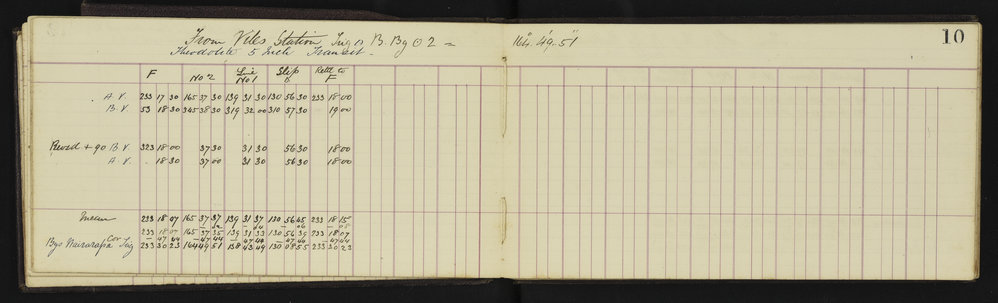 10
From Station Trig B. Bg ⊙ 2 = 164°. 49'. 51"
Theodolite 5 Inch Transit.
F No 2 Line No 1 Slip Retd to F
A. V. 233 17 30 165 37 30 139 31 30 130 56 30 233 18 00
B. V. 53 18 30 345 38 30 319 32 00 310 57 30 19 00
+ 90 B V. 323 18 00 37 30 31 30 56 30 18 00
A. V. . 18 30 37 00 31 30 56 30 18 00
Mean 233 18 07 165 37 37 139 31 37 130 56 45 233 18 15
233 18 07 165 37 35 139 31 33 130 56 39 233 18 07
Cor – 47 44 – 47 44 – 47 44 – 47 44 – 47 44
Bgs Wairarapa Trig 233 30 23 164 49 51 138 43 49 130 08 55 233 30 23